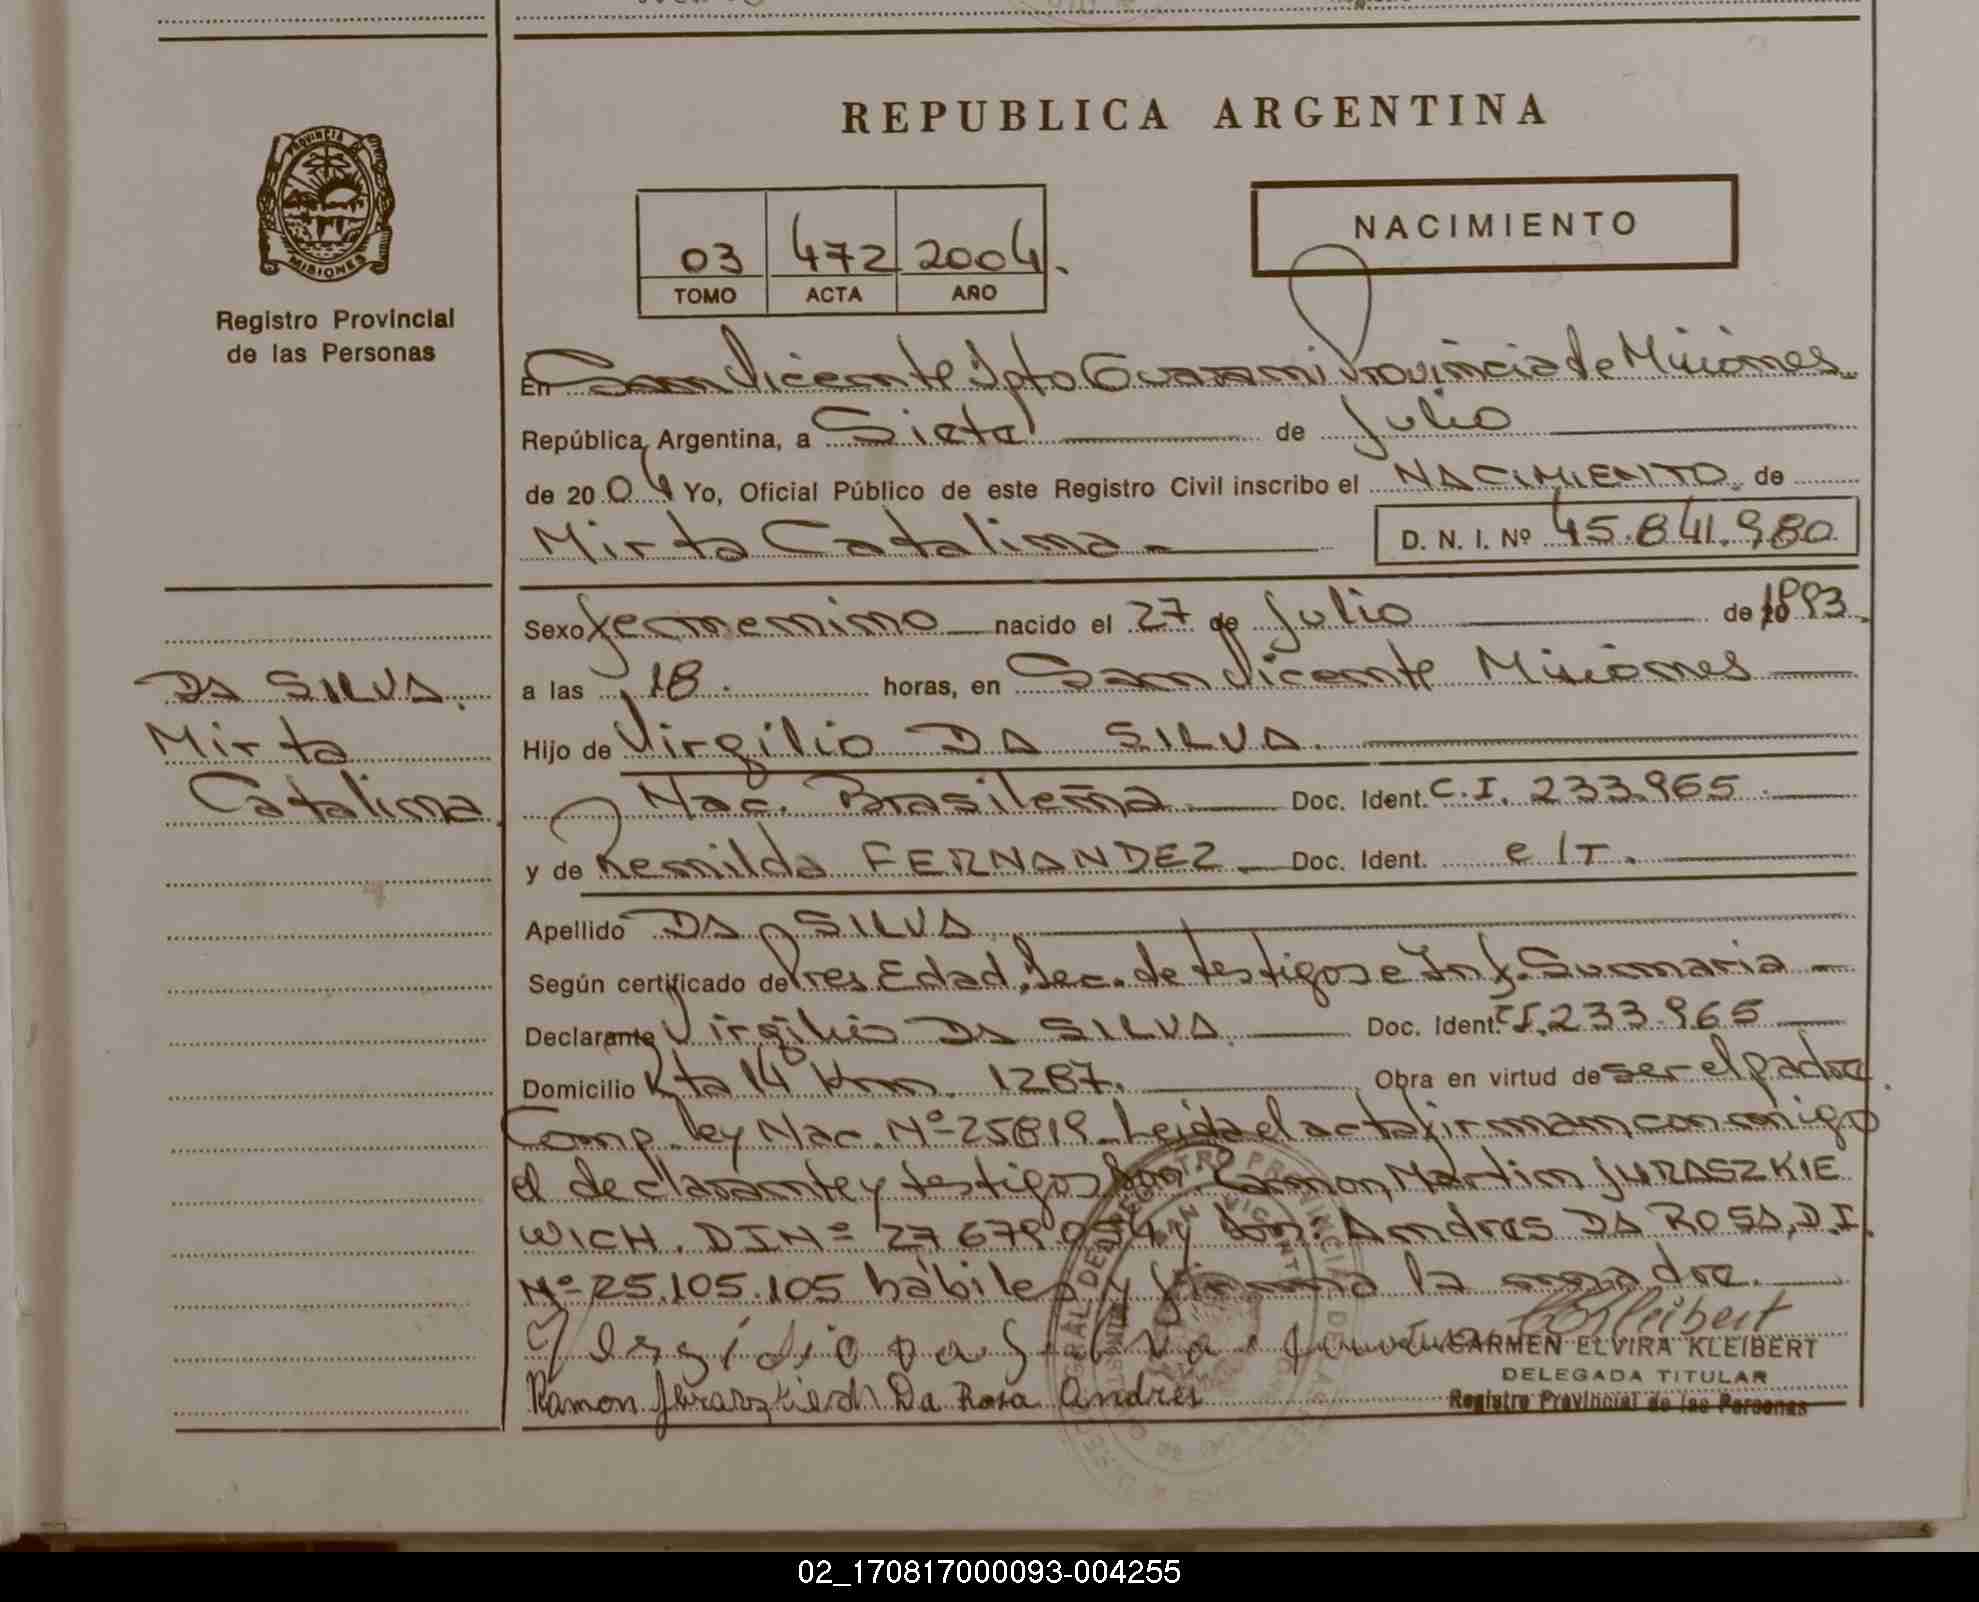 REPUBLICA ARGENTINA
PROVINCIA DE
MISIONES
Registro Provincial
de las Personas
03 472 2004.
TOMO ACTA AÑO
NACIMIENTO
En San Vicente Dpto Guarani Provincia de Misiones
República Argentina, a Siete de Julio
de 2004 Yo, Oficial Público de este Registro Civil inscribo el NACIMIENTO de
Mirta Catalina D. N. I. Nº 45.841.980
Sexo femenino nacido el 27 de Julio de 1993.
a las 18. horas, en San Vicente Misiones
Hijo de Virgilio DA SILVA.
Nac. Brasileña Doc. Ident. C.I. 233.965
y de Remilda FERNANDEZ Doc. Ident. e/T.
Apellido DA SILVA
Según certificado de Pres. Edad, Dec. de testigos e Inf. Sumaria
Declarante Virgilio DA SILVA Doc. Ident. C.I. 233.965
Domicilio Kta 14 Km. 1287. Obra en virtud de ser el padre.
Comp. ley Nac. Nº 25819. Leida el acta firman conmigo
el declarante y testigos Don Ramon Martin JURASZKIE
WICH. DI Nº 27.679.054 y Don: Andres DA ROSA, D.I.
Nº 25.105.105 hábiles y firma la madre.
DA SILVA.
Mirta
Catalina.
Ramon Juraszkievich Da Rosa Andres
CARMEN ELVIRA KLEIBERT
DELEGADA TITULAR
Registro Provincial de las Personas
02_170817000093-004255